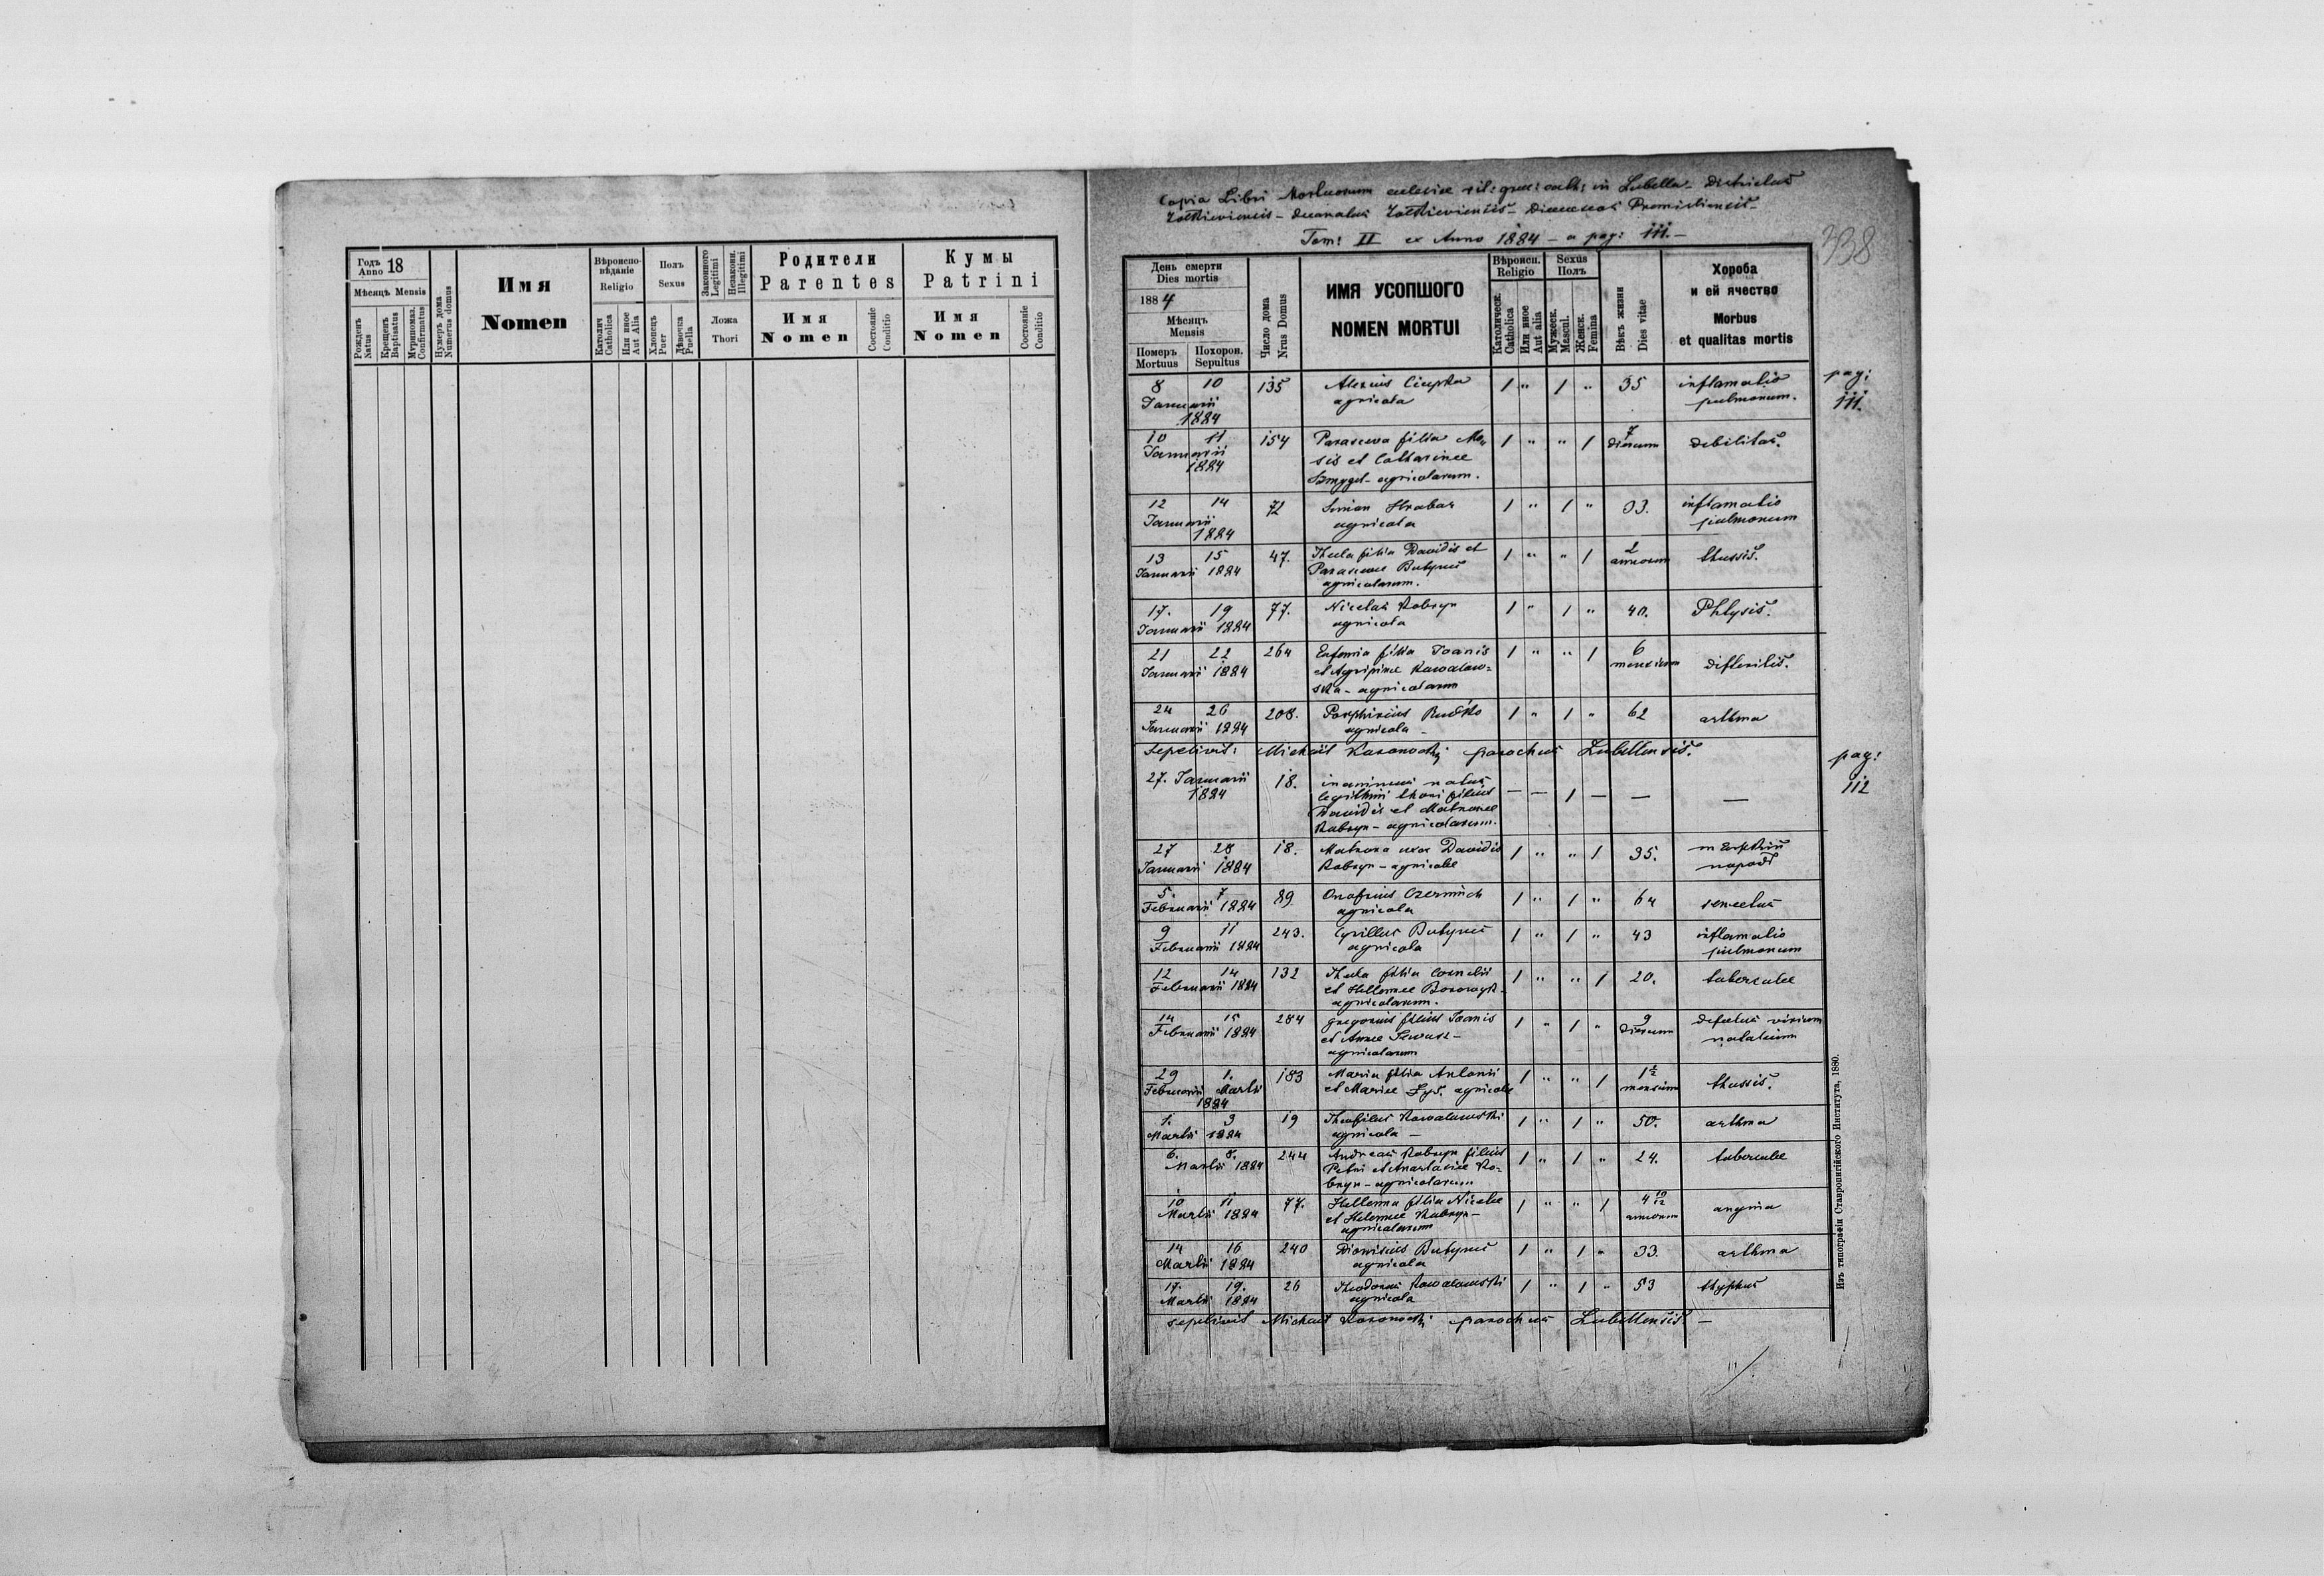 Годъ Anno 18
Мѣсяцъ Mensis
Рожденъ Natus
Крещенъ Baptisatus
Мѵрпомаз. Confirmatus
Нумеръ дома Numerus domus
Имя
Nomen
Вѣроиспо-
вѣданіе
Religio
Католич Catholica
Или иное Aut Alia
Полъ
Sexus
Хлопецъ Puer
Дѣвочка Puella
Законного Legitimi
Незаконн. Illegitimi
Ложа
Thori
Родители
Parentes
Имя
Nomen
Состояніе Conditio
Кумы
Patrini
Имя
Nomen
Состояніе Conditio
Copia Libri Mortuorum ecclesiae rit: graec: cath: in Lubella - Districtus
Zołkieviensis - Decanatus Zołkieviensis - Premisliensis -
Tom: II ex Anno 1884 - a pag: 111. -
338
День смерти
Dies mortis
1884
Мѣсяцъ
Mensis
Померъ Mortuus
Похорон. Sepultus
Число дома
Nrus Domus
ИМЯ УСОПШОГО
NOMEN MORTUI
Вѣроисп.
Religio
Католическ. Catholica
Или иное Aut alia
Sexus
Полъ
Мужеск. Mascul.
Женск. Femina
Вѣкъ жизни
Dies vitae
Хороба
и ей ячество
Morbus
et qualitas mortis
8 10 135 Alexius 1 " 1 " 35 inflamatio pag:
Januarii agricola pulmonum. 111.
1884
10 11 154 Parasceva filia Mo„ 1 " " 1 7 dierum debilitas.
Januarii sis et Catharinae
1884 agricolarum.
12 14 72 Simon Hrabar 1 " 1 " 33. inflamatio
Januarii agricola pulmonum
1884
13 15 47. Thecla filia Davidis et 1 " " 1 2 annorum thussis.
Januarii 1884 Parascevae Butynec
agricolarum.
17. 19 77. Nicolaus Kobryn 1 " 1 " 40. Phtysis.
Januarii 1884 agricola
21 22 264 Eufemia filia Joanis 1 " " 1 6 mensium difteritis.
Januarii 1884 et Agripinae Kowalew=
ska - agricolarum
24 26 208. Porphirius Rudko 1 " 1 " 62 asthma
Januarii 1884 agricola -
Sepelivit: Michaël parochus Lubellensis.
27. Januarii 18. inanimus natus — — 1 — — — pag:
1884 legithimi thori filius 112
Davidis et Matronae
Kobryn - agricolarum.
27 28 18. Matrona uxor Davidis 1 " " 1 35.
Januarii 1884 Kobryn - agricolae
5. 7 89 Onufrius Czerminch 1 " 1 " 64 senectus
Februarii 1884 agricola
9 11 243. Cyrillus Butynec 1 " 1 " 43 inflamatio
Februarii 1884 agricola pulmonum
12 14 132 Thecla filia Cornelii 1 " " 1 20. tuberculae
Februarii 1884 et Hellenae
agricolarum.
14 15 284 Gregorius filius Joanis 1 " 1 " 9 dierum defectus virium
Februarii 1884 et Annae natalium
agricolarum
29 1. 183 Maria filia Antonii 1 " " 1 1½ mensium thussis.
Februarii Martii et Mariae Łys. agricolae
1884
1. 3 19 Theofilus Kowalewski 1 " 1 " 50. asthma
Martii 1884 agricola -
6. 8. 244 Andreas Kobryn filius 1 " 1 " 24. tuberculae
Martii 1884 Petri et Anastasiae Ko-
bryn - agricolarum
10 11 77. Hellenna filia Nicolae 1 " " 1 4 10/12 annorum angina
Martii 1884 et Helenae Kobryn -
agricolarum
14 16 240 Dionisius Butynec 1 " 1 " 33. asthma
Martii 1884 agricola
17. 19. 26 Theodorus Kowalewski 1 " 1 " 53 thyphus
Martii 1884 agricola
sepelivit Michael parochus Lubellensis -
Изъ типографіи Ставропигійского Института, 1880.